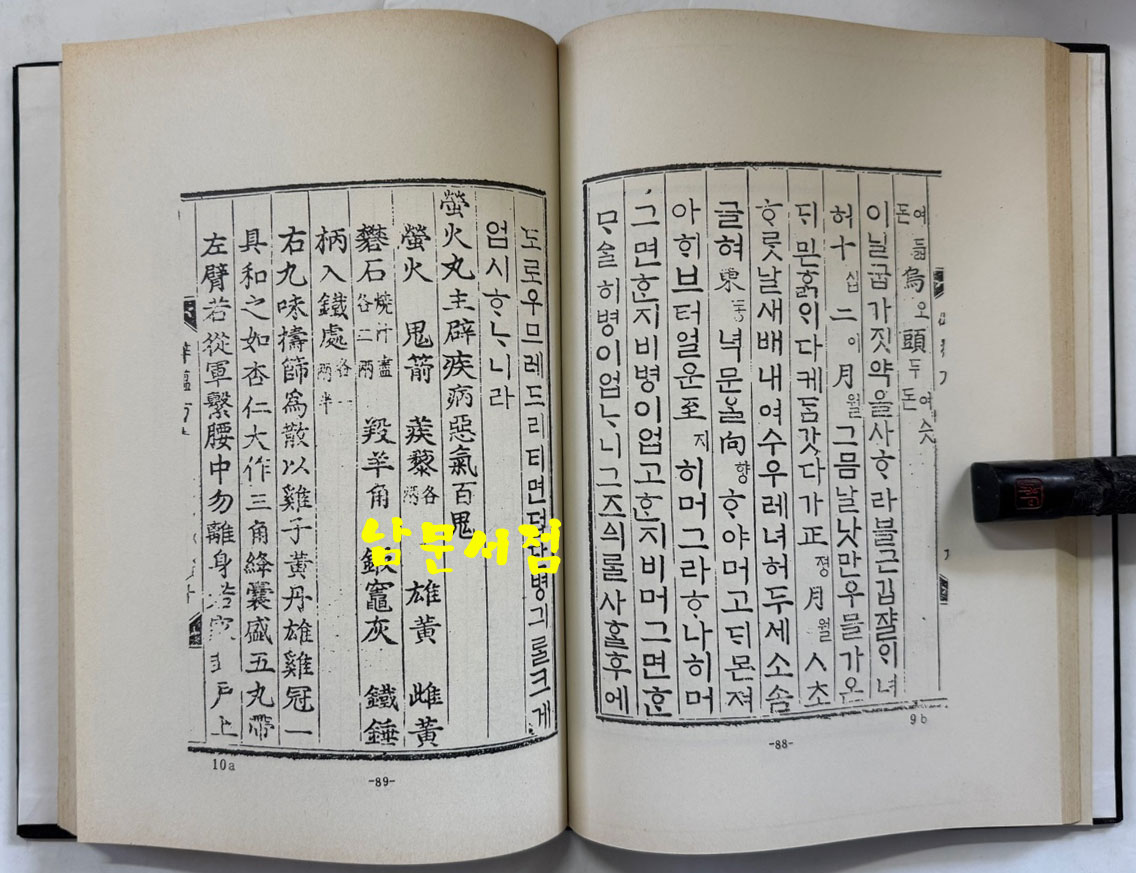 여듧돈烏오頭두여슷돈
이닐굽가짓약을사ᄒᆞ라블근깁쟐이녀
허十십二이月월그믐날낫만우믈가온
ᄃᆡ믿ᄒᆞᆰ이다케ᄃᆞᆷ갓다가正졍月월ㅅ초
ᄒᆞᄅᆞᆺ날새배내여수우레녀허두세소솜
글혀東동녁문을向향ᄒᆞ야머고ᄃᆡ몬져
아ᄒᆡ브터얼운至지히머그라ᄒᆞ나히머
그면ᄒᆞᆫ지비병이업고ᄒᆞᆫ지비머그면ᄒᆞᆫ
ᄆᆞ술히병이업ᄂᆞ니그즈ᅀᅴᄅᆞᆯ사ᄒᆞᆯ후에
9b
-88-
도로우므레드리티면병긔ᄅᆞᆯ크게
업시ᄒᆞᄂᆞ니라
螢火丸主辟疾病惡氣百鬼
螢火 鬼箭 蒺藜各兩 雄黃 雌黃
礬石燒汁盡各二兩 羖羊角 竈灰 鐵錘
柄入鐵處各一兩半
右九味擣篩爲散以雞子黃丹雄雞冠一
具和之如杏仁大作三角絳囊盛五丸帶
左臂若從軍繫腰中勿離身若家戶上
10a
-89-
남문서점